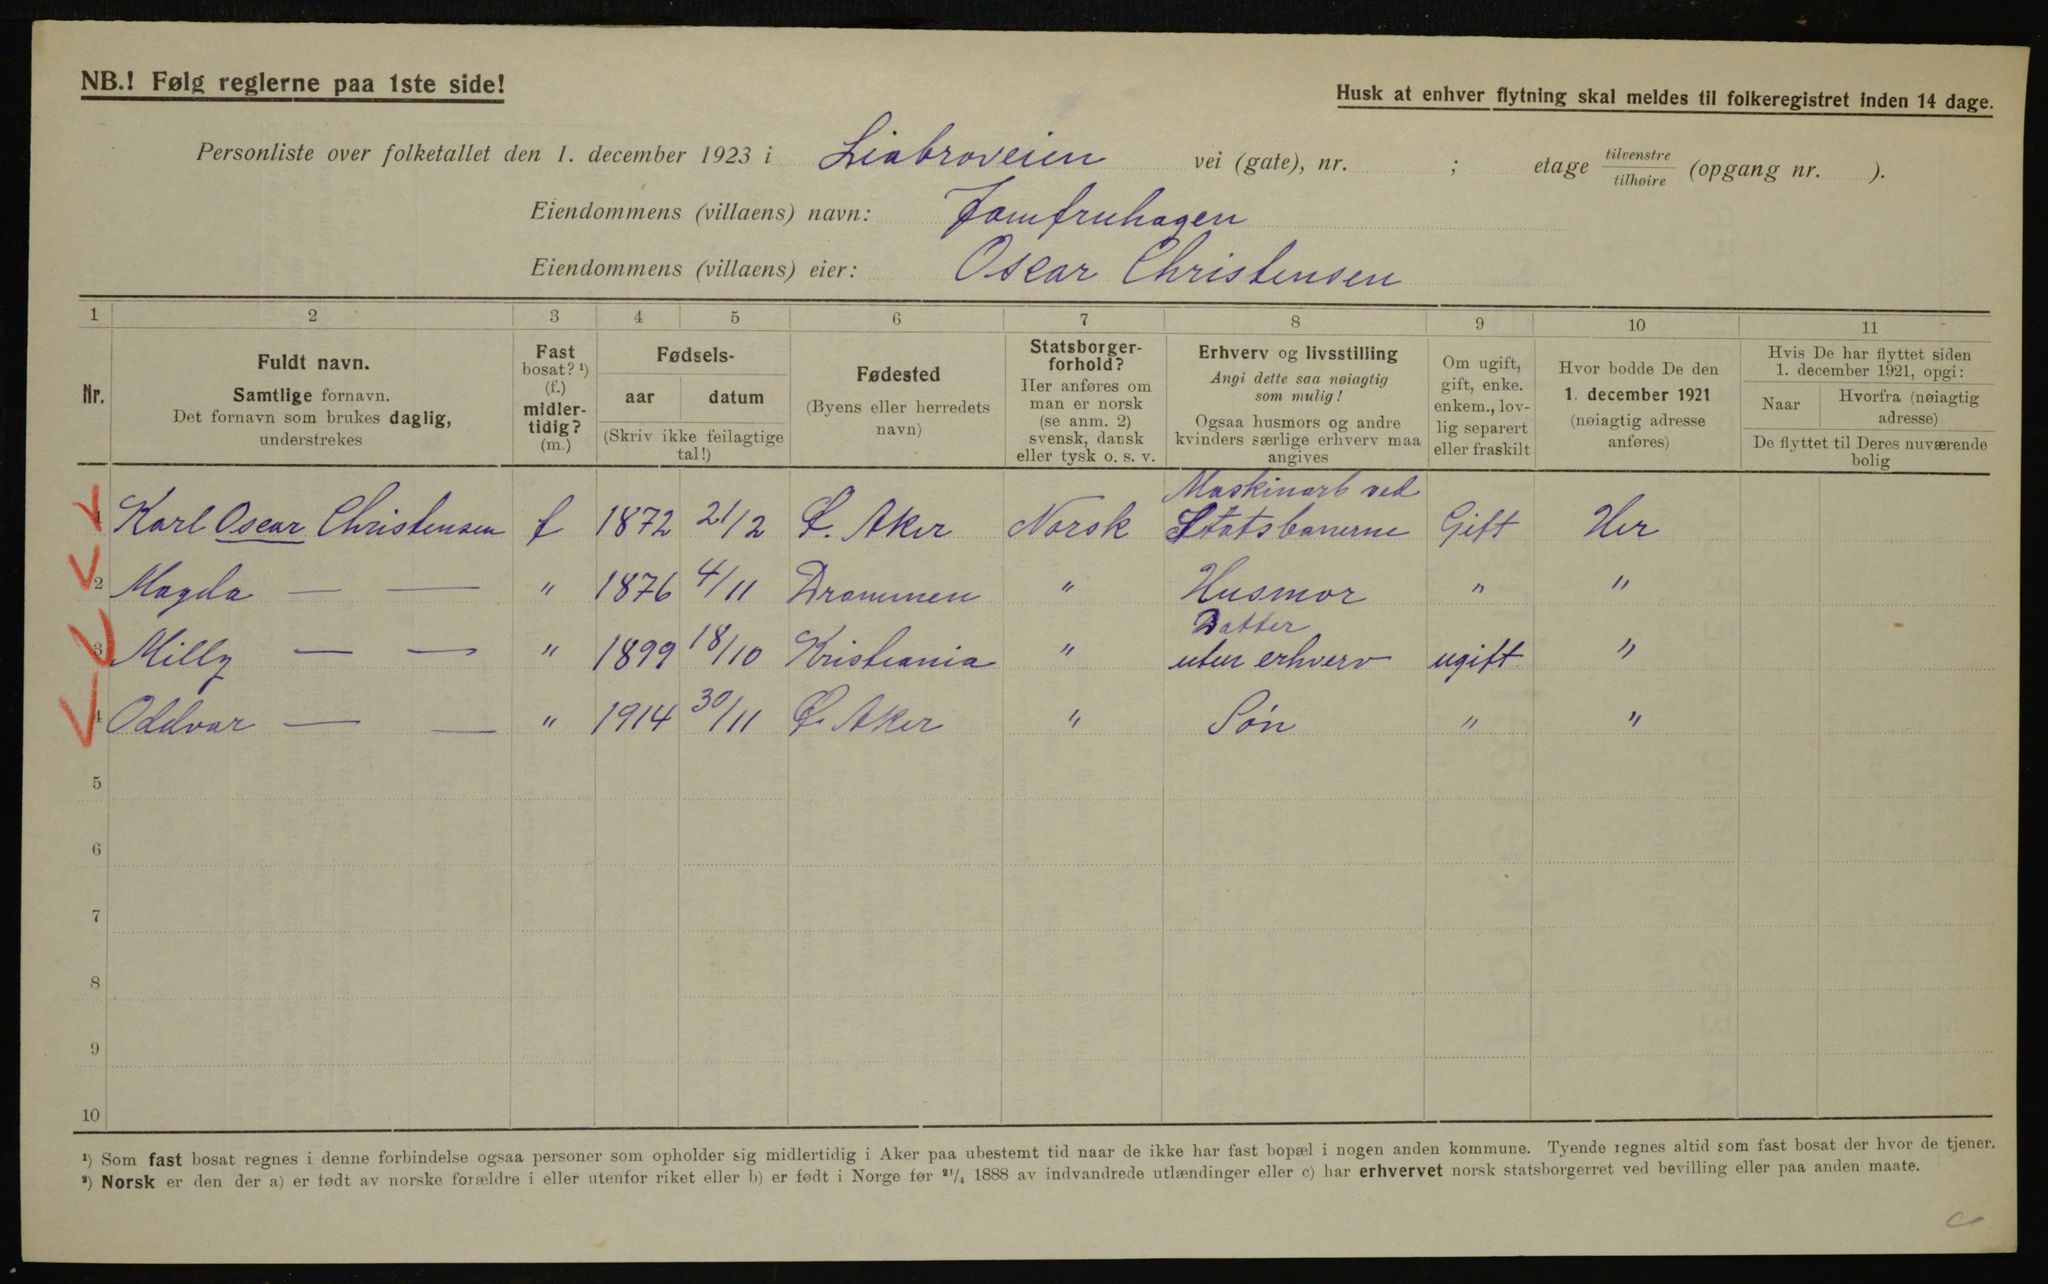 NB.! Følg reglerne paa 1ste side!
Husk at enhver flytning skal meldes til folkeregistret inden 14 dage.
Personliste over folketallet den 1. december 1923 i Liabroveien vei (gate), nr. ; etage tilvenstre/tilhøire (opgang nr. ).
Eiendommens (villaens) navn: Jomfruhagen
Eiendommens (villaens) eier: Oscar Christensen
1 2 3 4 5 6 7 8 9 10 11
Nr.
Fuldt navn.
Samtlige fornavn.
Det fornavn som brukes daglig,
understrekes
Fast
bosat? ¹)
(f.)
midler-
tidig?
(m.)
Fødsels-
aar datum
(Skriv ikke feilagtige
tal!)
Fødested
(Byens eller herredets
navn)
Statsborger-
forhold?
Her anføres om
man er norsk
(se anm. 2)
svensk, dansk
eller tysk o. s. v.
Erhverv og livsstilling
Angi dette saa nøiagtig
som mulig!
Ogsaa husmors og andre
kvinders særlige erhverv maa
angives
Om ugift,
gift, enke.
enkem., lov-
lig separert
eller fraskilt
Hvor bodde De den
1. december 1921
(nøiagtig adresse
anføres)
Hvis De har flyttet siden
1. december 1921, opgi:
Naar
Hvorfra (nøiagtig
adresse)
De flyttet til Deres nuværende
bolig
Maskinarb ved
1 Karl Oscar Christensen f 1872 21/2 Ø. Aker Norsk Statsbanerne Gift Her
2 Magda — — " 1876 4/11 Drammen " Husmor " "
Datter
3 Milly — — " 1899 18/10 Kristiania " uten erhverv ugift "
4 Oddvar — — " 1914 30/11 Ø. Aker " Søn " "
5
6
7
8
9
10
¹) Som fast bosat regnes i denne forbindelse ogsaa personer som opholder sig midlertidig i Aker paa ubestemt tid naar de ikke har fast bopæl i nogen anden kommune. Tyende regnes altid som fast bosat der hvor de tjener.
²) Norsk er den der a) er født av norske forældre i eller utenfor riket eller b) er født i Norge før ²¹/₄ 1888 av indvandrede utlændinger eller c) har erhvervet norsk statsborgerret ved bevilling eller paa anden maate.